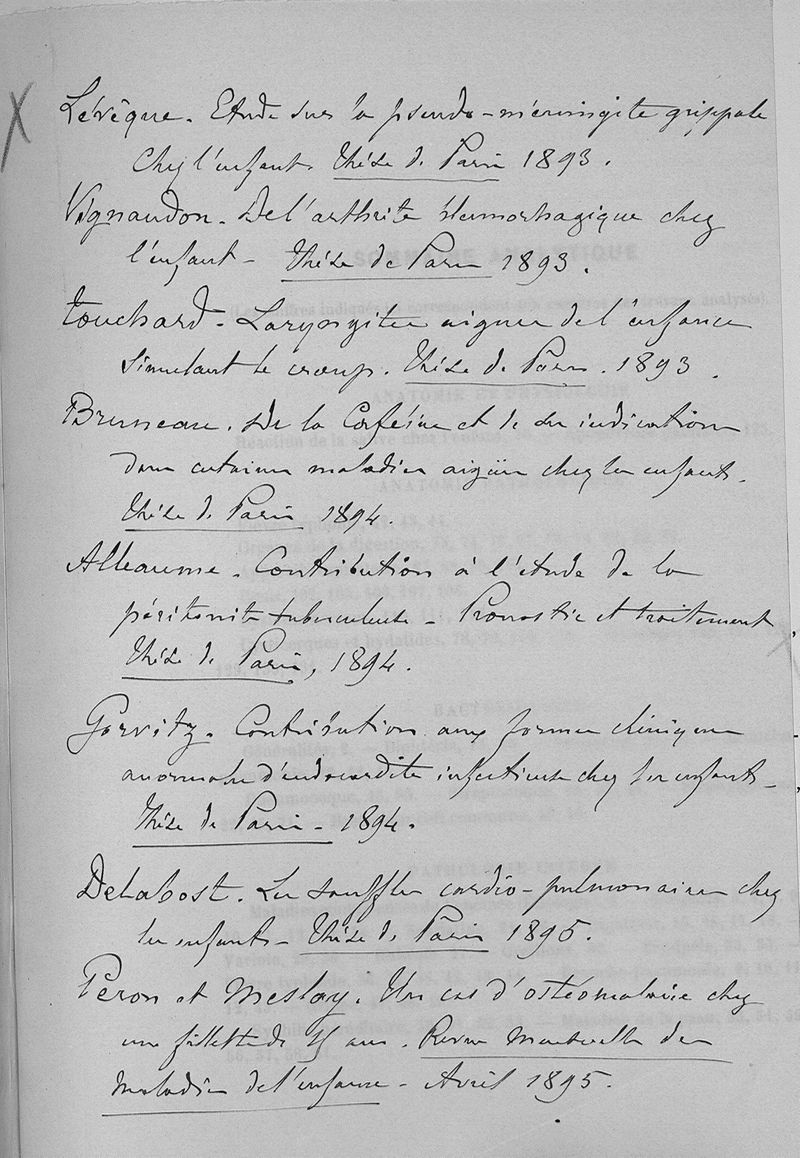 Lévêque. Etude sur la pseudo-méningite grippale
chez l'enfant. Thèse de Paris 1893.
Vignaudon. De l'arthrite blennorrhagique chez
l'enfant - Thèse de Paris 1893.
Touchard - Laryngites aigues de l'enfance
simulant le croup. Thèse de Paris. 1893.
Bruneau. De la Caféine et de ses indications
dans certaines maladies aigües chez les enfants.
Thèse de Paris 1894.
Alleaume. Contribution à l'étude de la
péritonite tuberculeuse - Pronostic et traitement
Thèse de Paris, 1894.
Gorvitz. Contribution aux formes cliniques
anormales d'endocardite infectieuse chez les enfants -
Thèse de Paris - 1894.
Delabost. Les souffles cardio-pulmonaires chez
les enfants - Thèse de Paris 1895.
Péron et Meslay. Un cas d'ostéomalacie chez
une fillette de ans. Revue Mensuelle des
Maladies de l'enfance - Avril 1895.